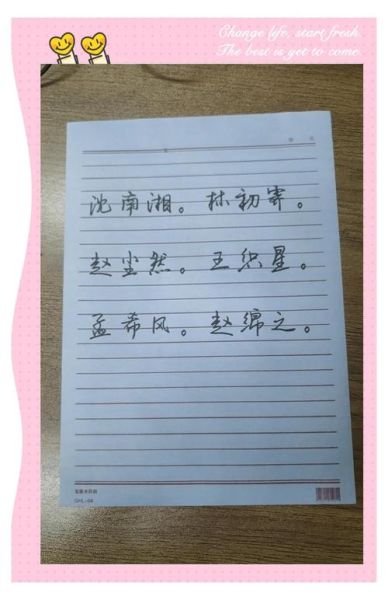 Change life, start fresh.
The best is yet to come.
沈南湘。林初霁。
赵尘然。王织星。
孟希风。赵绵之。
GHL-04